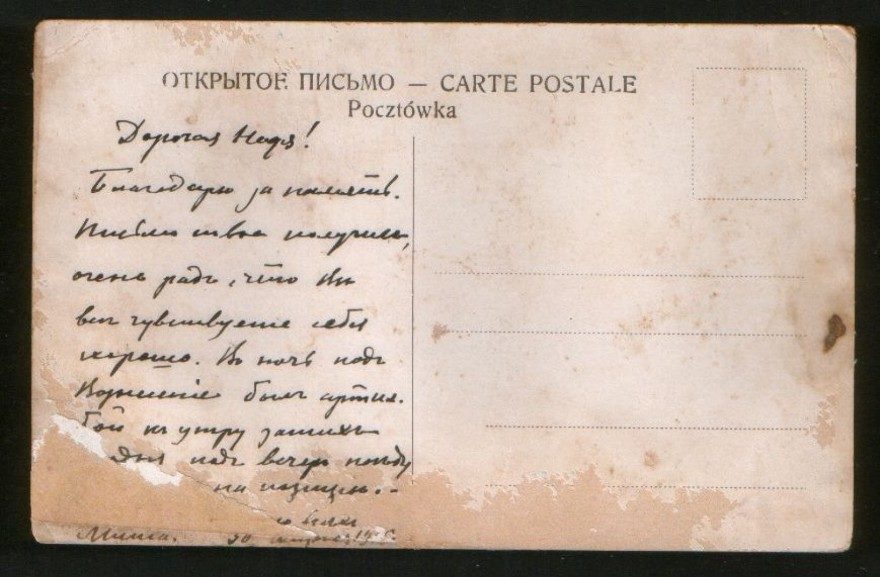 ОТКРЫТОЕ ПИСЬМО — CARTE POSTALE
Pocztówka
Дорогая Надя!
Благодарю за память.
Письмо твое получилъ,
очень радъ, что Вы
всѣ чувствуете себя
хорошо. Во ночь подъ
былъ артил.
бой къ утру затихъ
подъ вечеръ пойду
на позицію.
Миша.